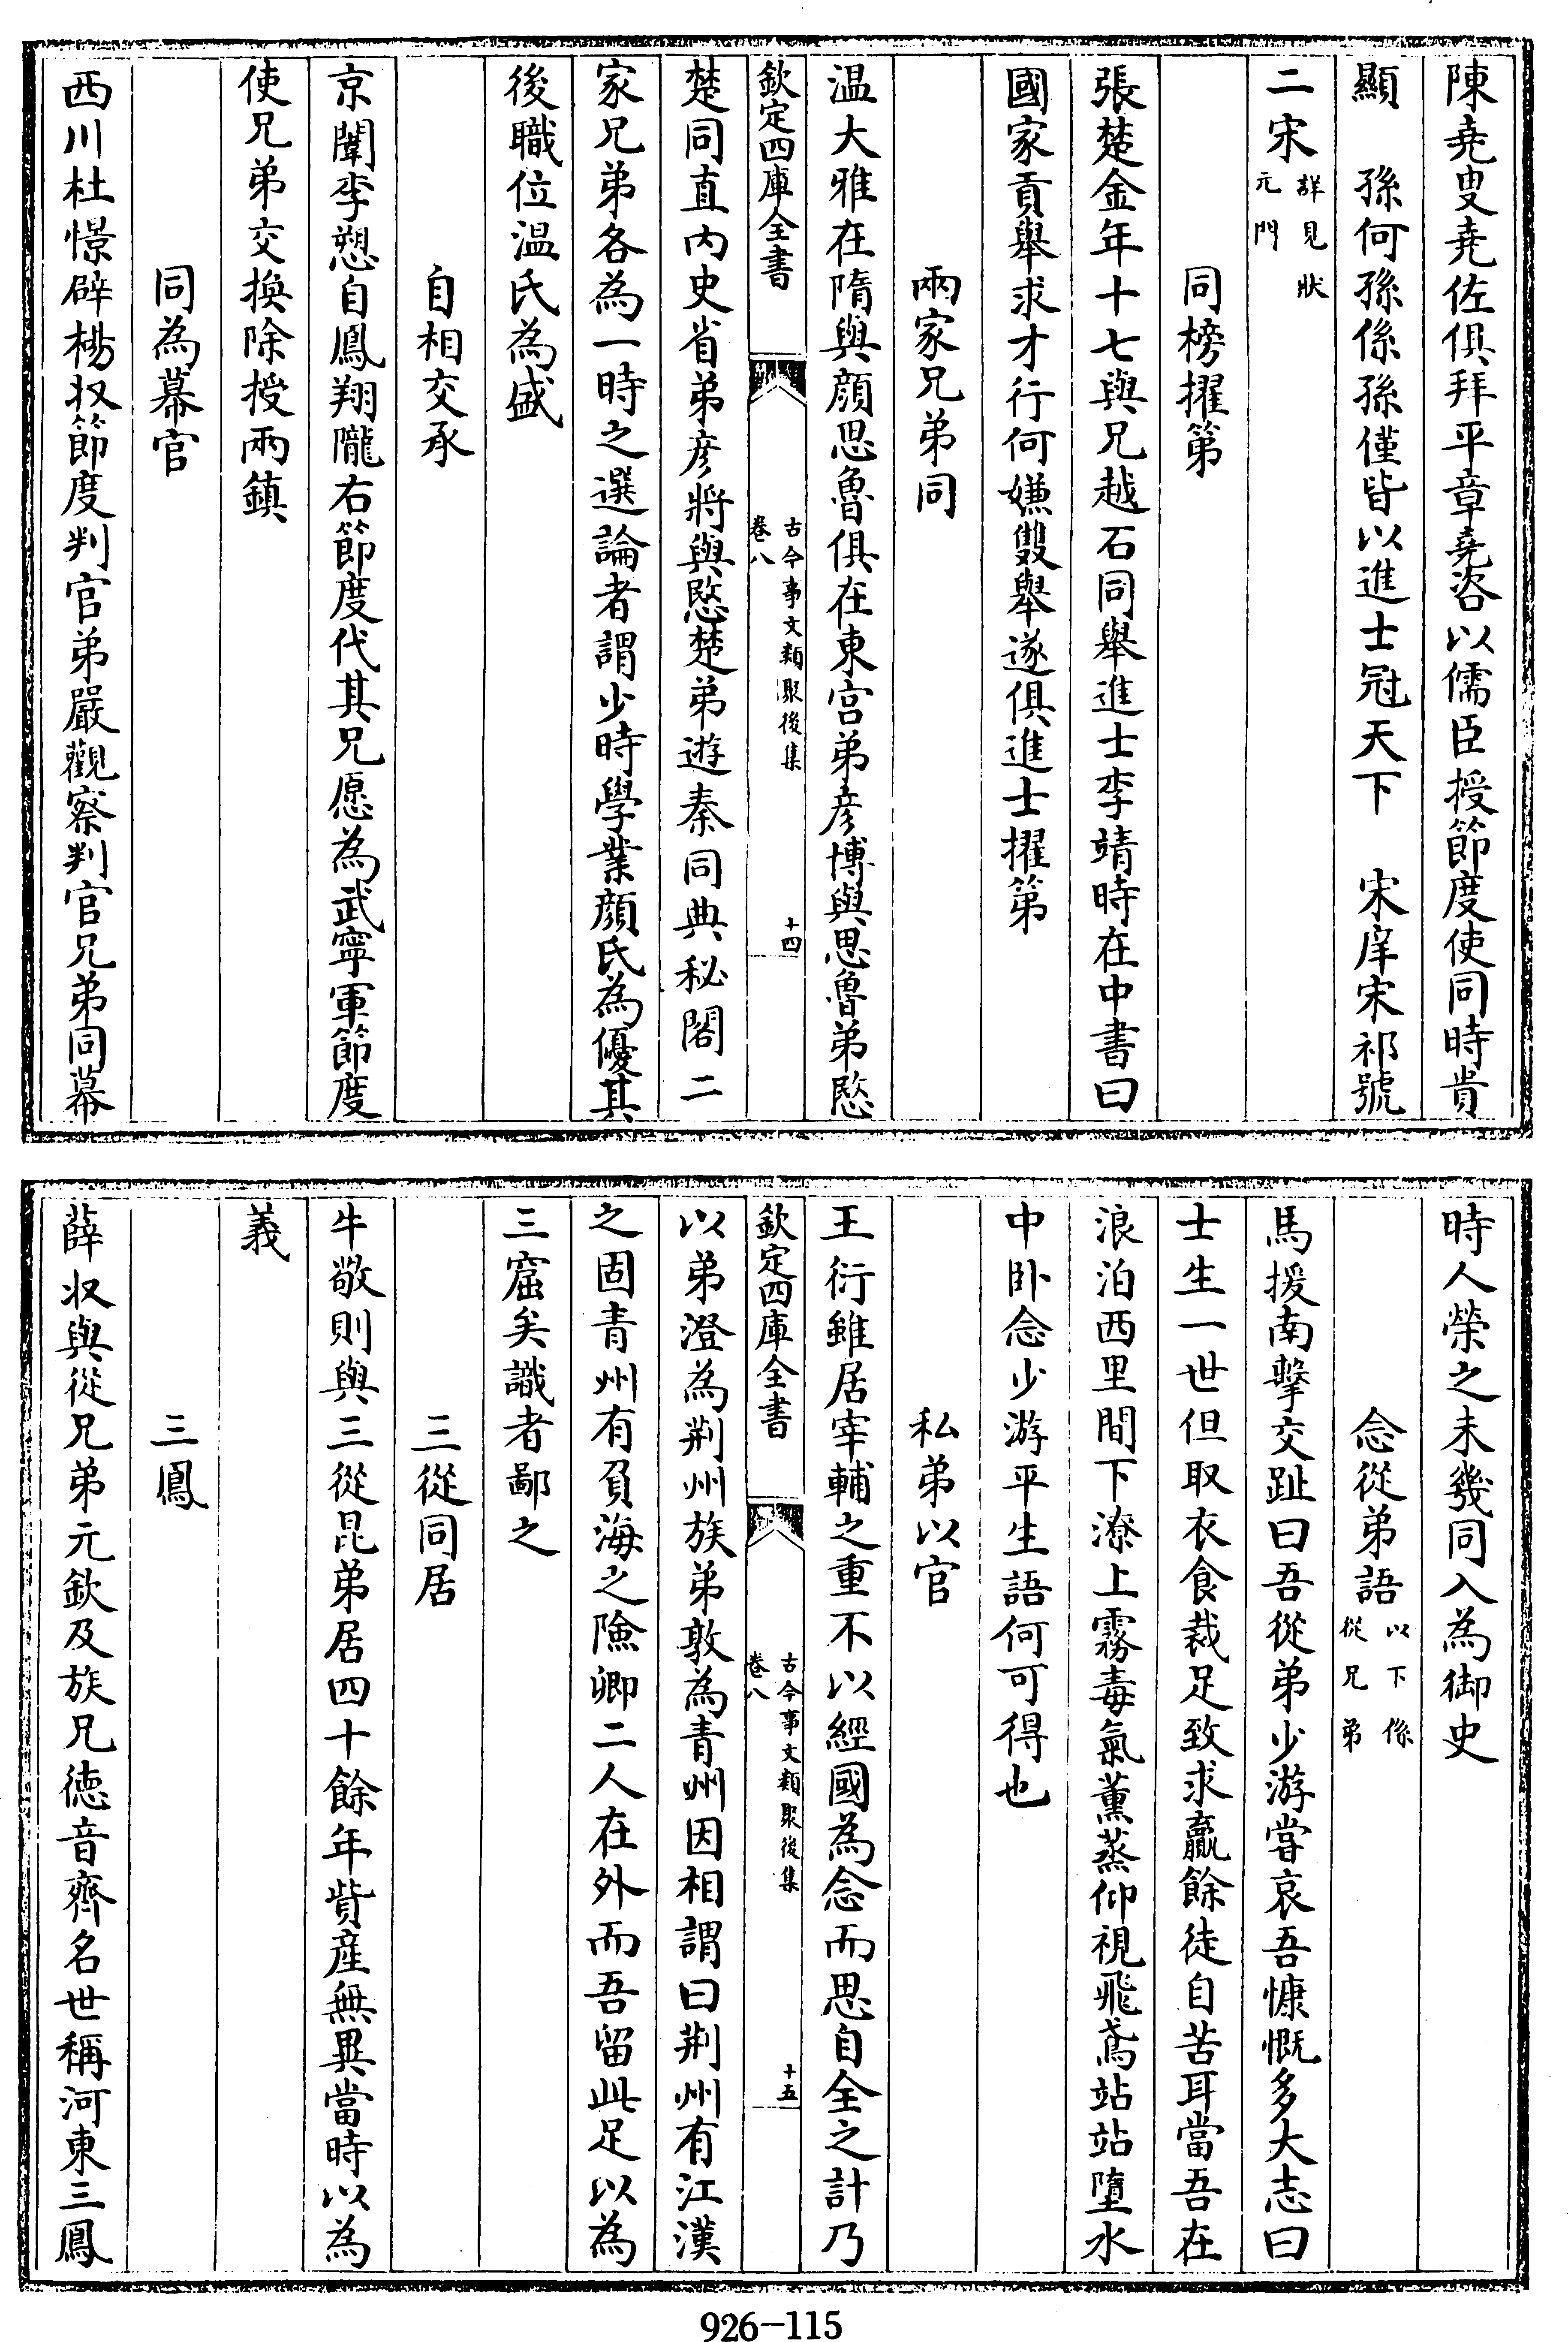 陳堯叟堯佐俱拜平章堯咨以儒臣授節度使同時貴
顯　孫何孫係孫僅皆以進士冠天下　宋庠宋祁號
二宋詳見狀元門
同榜擢第
張楚金年十七與兄越石同舉進士李靖時在中書曰
國家貢舉求才行何嫌雙舉遂俱進士擢第
兩家兄弟同
温大雅在隋與顔思魯俱在東宫弟彦博與思魯弟愍
欽定四庫全書
古今事文類聚後集
卷八
十四
楚同直内史省弟彦將與愍楚弟遊秦同典秘閣二
家兄弟各為一時之選論者謂少時學業顔氏為優其
後職位温氏為盛
自相交承
京闡李愬自鳳翔隴右節度代其兄愿為武寧軍節度
使兄弟交換除授兩鎮
同為幕官
西川杜憬辟楊収節度判官弟嚴觀察判官兄弟同幕
時人榮之未幾同入為御史
念從弟語以下係從兄弟
馬援南擊交趾曰吾從弟少游嘗哀吾慷慨多大志曰
士生一世但取衣食裁足致求贏餘徒自苦耳當吾在
浪泊西里間下潦上霧毒氣薰蒸仰視飛鳶站站墮水
中卧念少游平生語何可得也
私弟以官
王衍雖居宰輔之重不以經國為念而思自全之計乃
欽定四庫全書
古今事文類聚後集
卷八
十五
以弟澄為荆州族弟敦為青州因相謂曰荆州有江漢
之固青州有負海之險卿二人在外而吾留此足以為
三窟矣識者鄙之
三從同居
牛敬則與三從昆弟居四十餘年貲産無異當時以為
義
三鳳
薛収與從兄弟元欽及族兄徳音齊名世稱河東三鳳
926-115